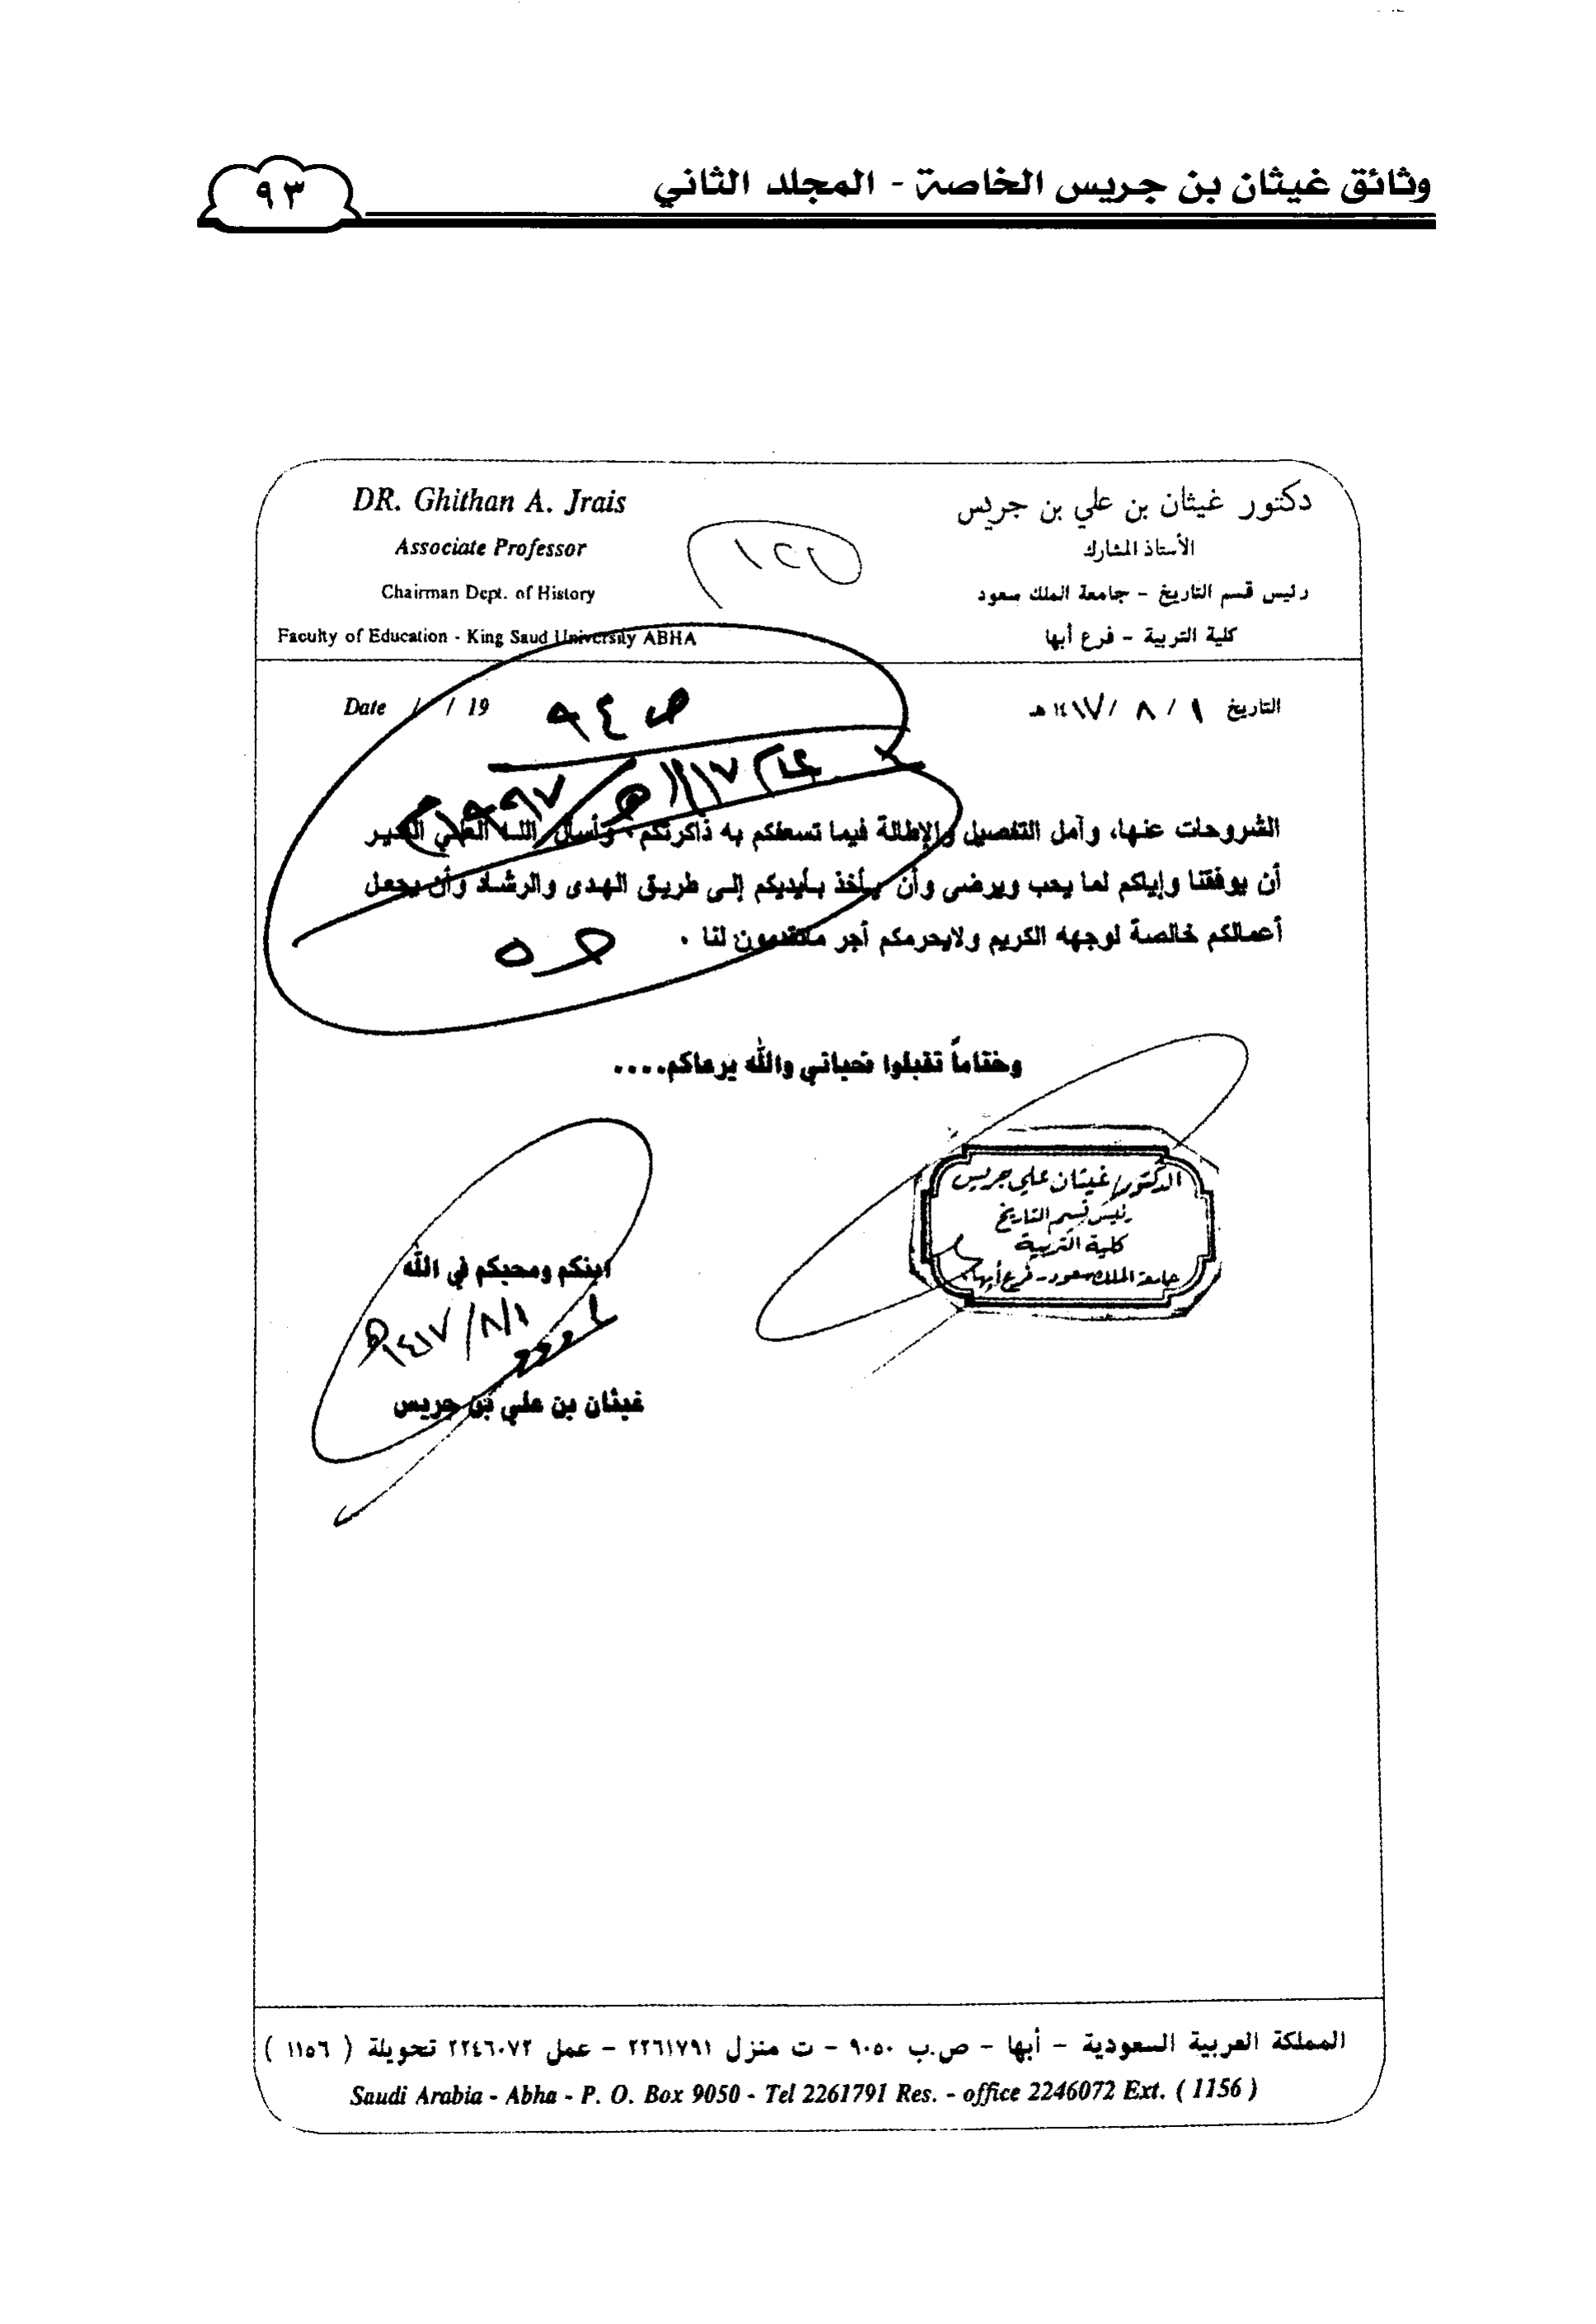 وثائق غيثان بن جريس الخاصة - المجلد الثاني
٩٣
دكتور غيثان بن علي بن جريس
DR. Ghithan A. Jrais
الأستاذ المشارك
Associate Professor
رئيس قسم التاريخ - جامعة الملك سعود
Chairman Dept. of History
كلية التربية - فرع أبها
Faculty of Education - King Saud University ABHA
التاريخ ١ / ٨ / ١٤١٧ هـ
Date / / 19
ص ٩٤
الشروحات عنها، وآمل التفصيل والإطالة فيما تسعفكم به ذاكرتكم، وأسأل اللـه العلي القدير
أن يوفقنا وإياكم لما يحب ويرضى وأن يـأخذ بـأيديكم إلـى طريق الهدى والرشـاد وأن يجعل
أعمـالكم خالصة لوجهه الكريم ولايحرمكم أجر ماتقدمون لنا .
وختاماً تقبلوا تحياتي والله يرعاكم....
الدكتور/ غيثان علي جريس
رئيس قسم التاريخ
كلية التربية
جامعة الملك سعود - فرع أبها
ابنكم ومحبكم في الله
١/٨/١٤١٧هـ
غيثان بن علي بن جريس
المملكة العربية السعودية - أبها - ص.ب ٩٠٥٠ - ت منزل ٢٢٦١٧٩١ - عمل ٢٢٤٦٠٧٢ تحويلة ( ١١٥٦ )
Saudi Arabia - Abha - P. O. Box 9050 - Tel 2261791 Res. - office 2246072 Ext. ( 1156 )